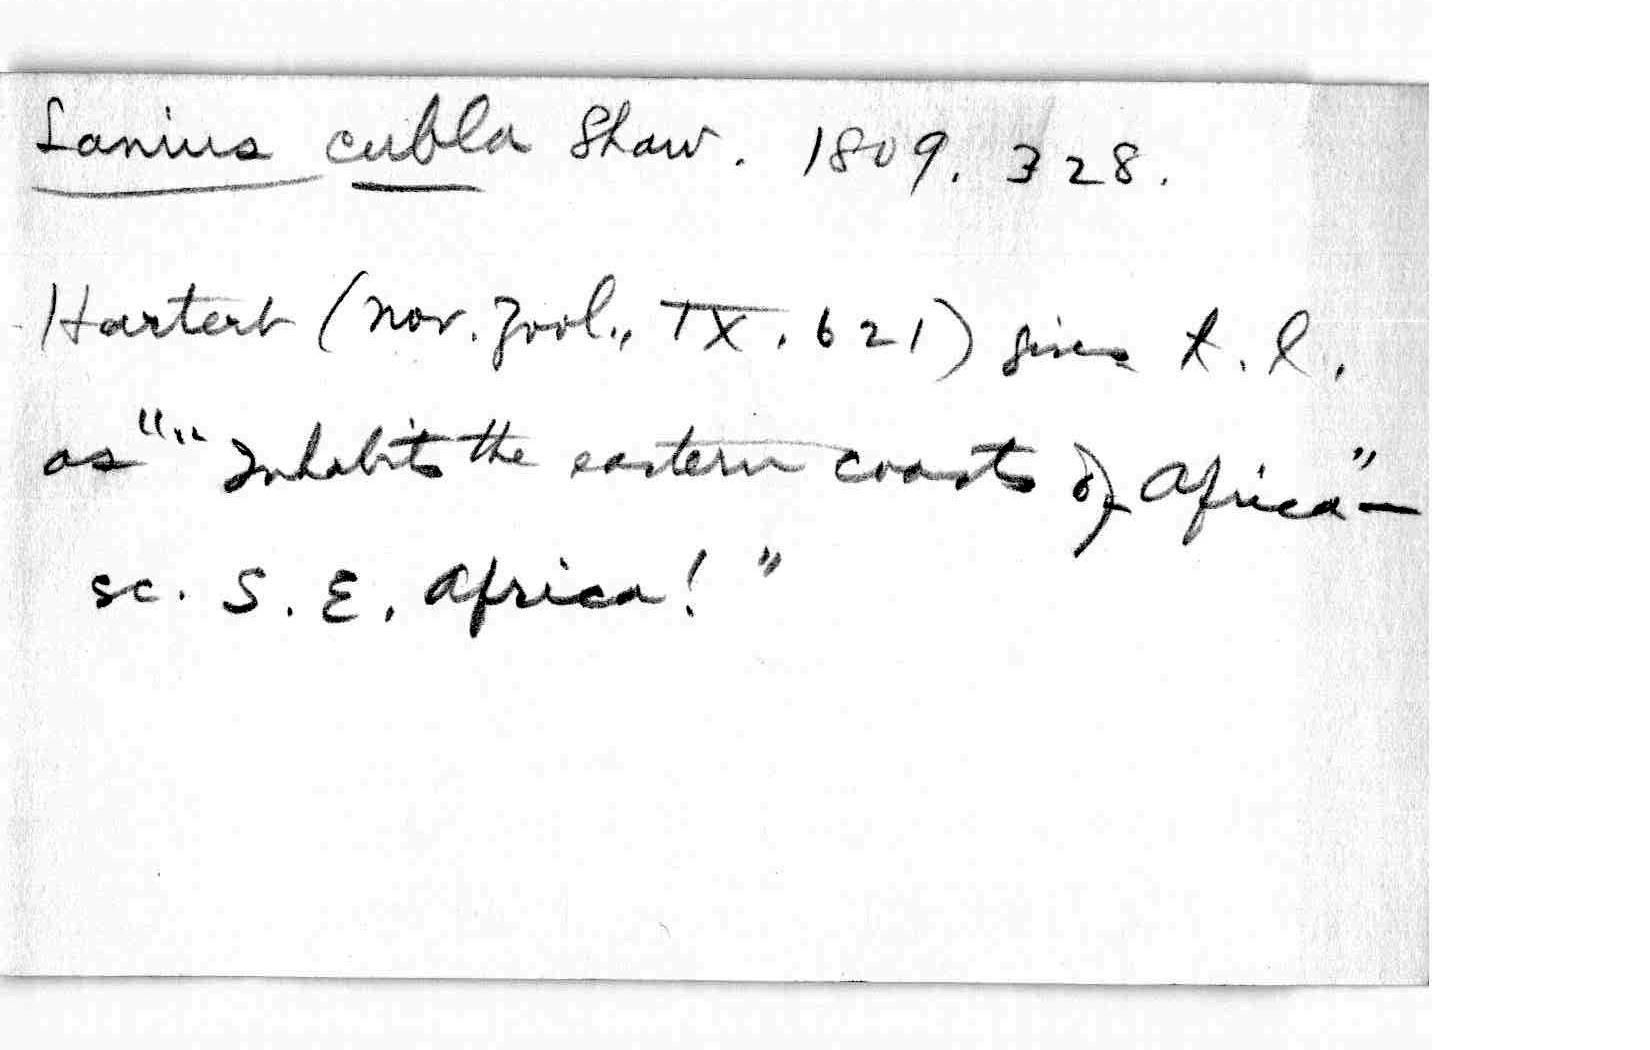 Lanius cubla Shaw. 1809. 328.
Hartert (Nov. Zool., IX, 621) gives t.l.
as "" Inhabits the eastern coasts of Africa"—
sc. S. E. Africa!"